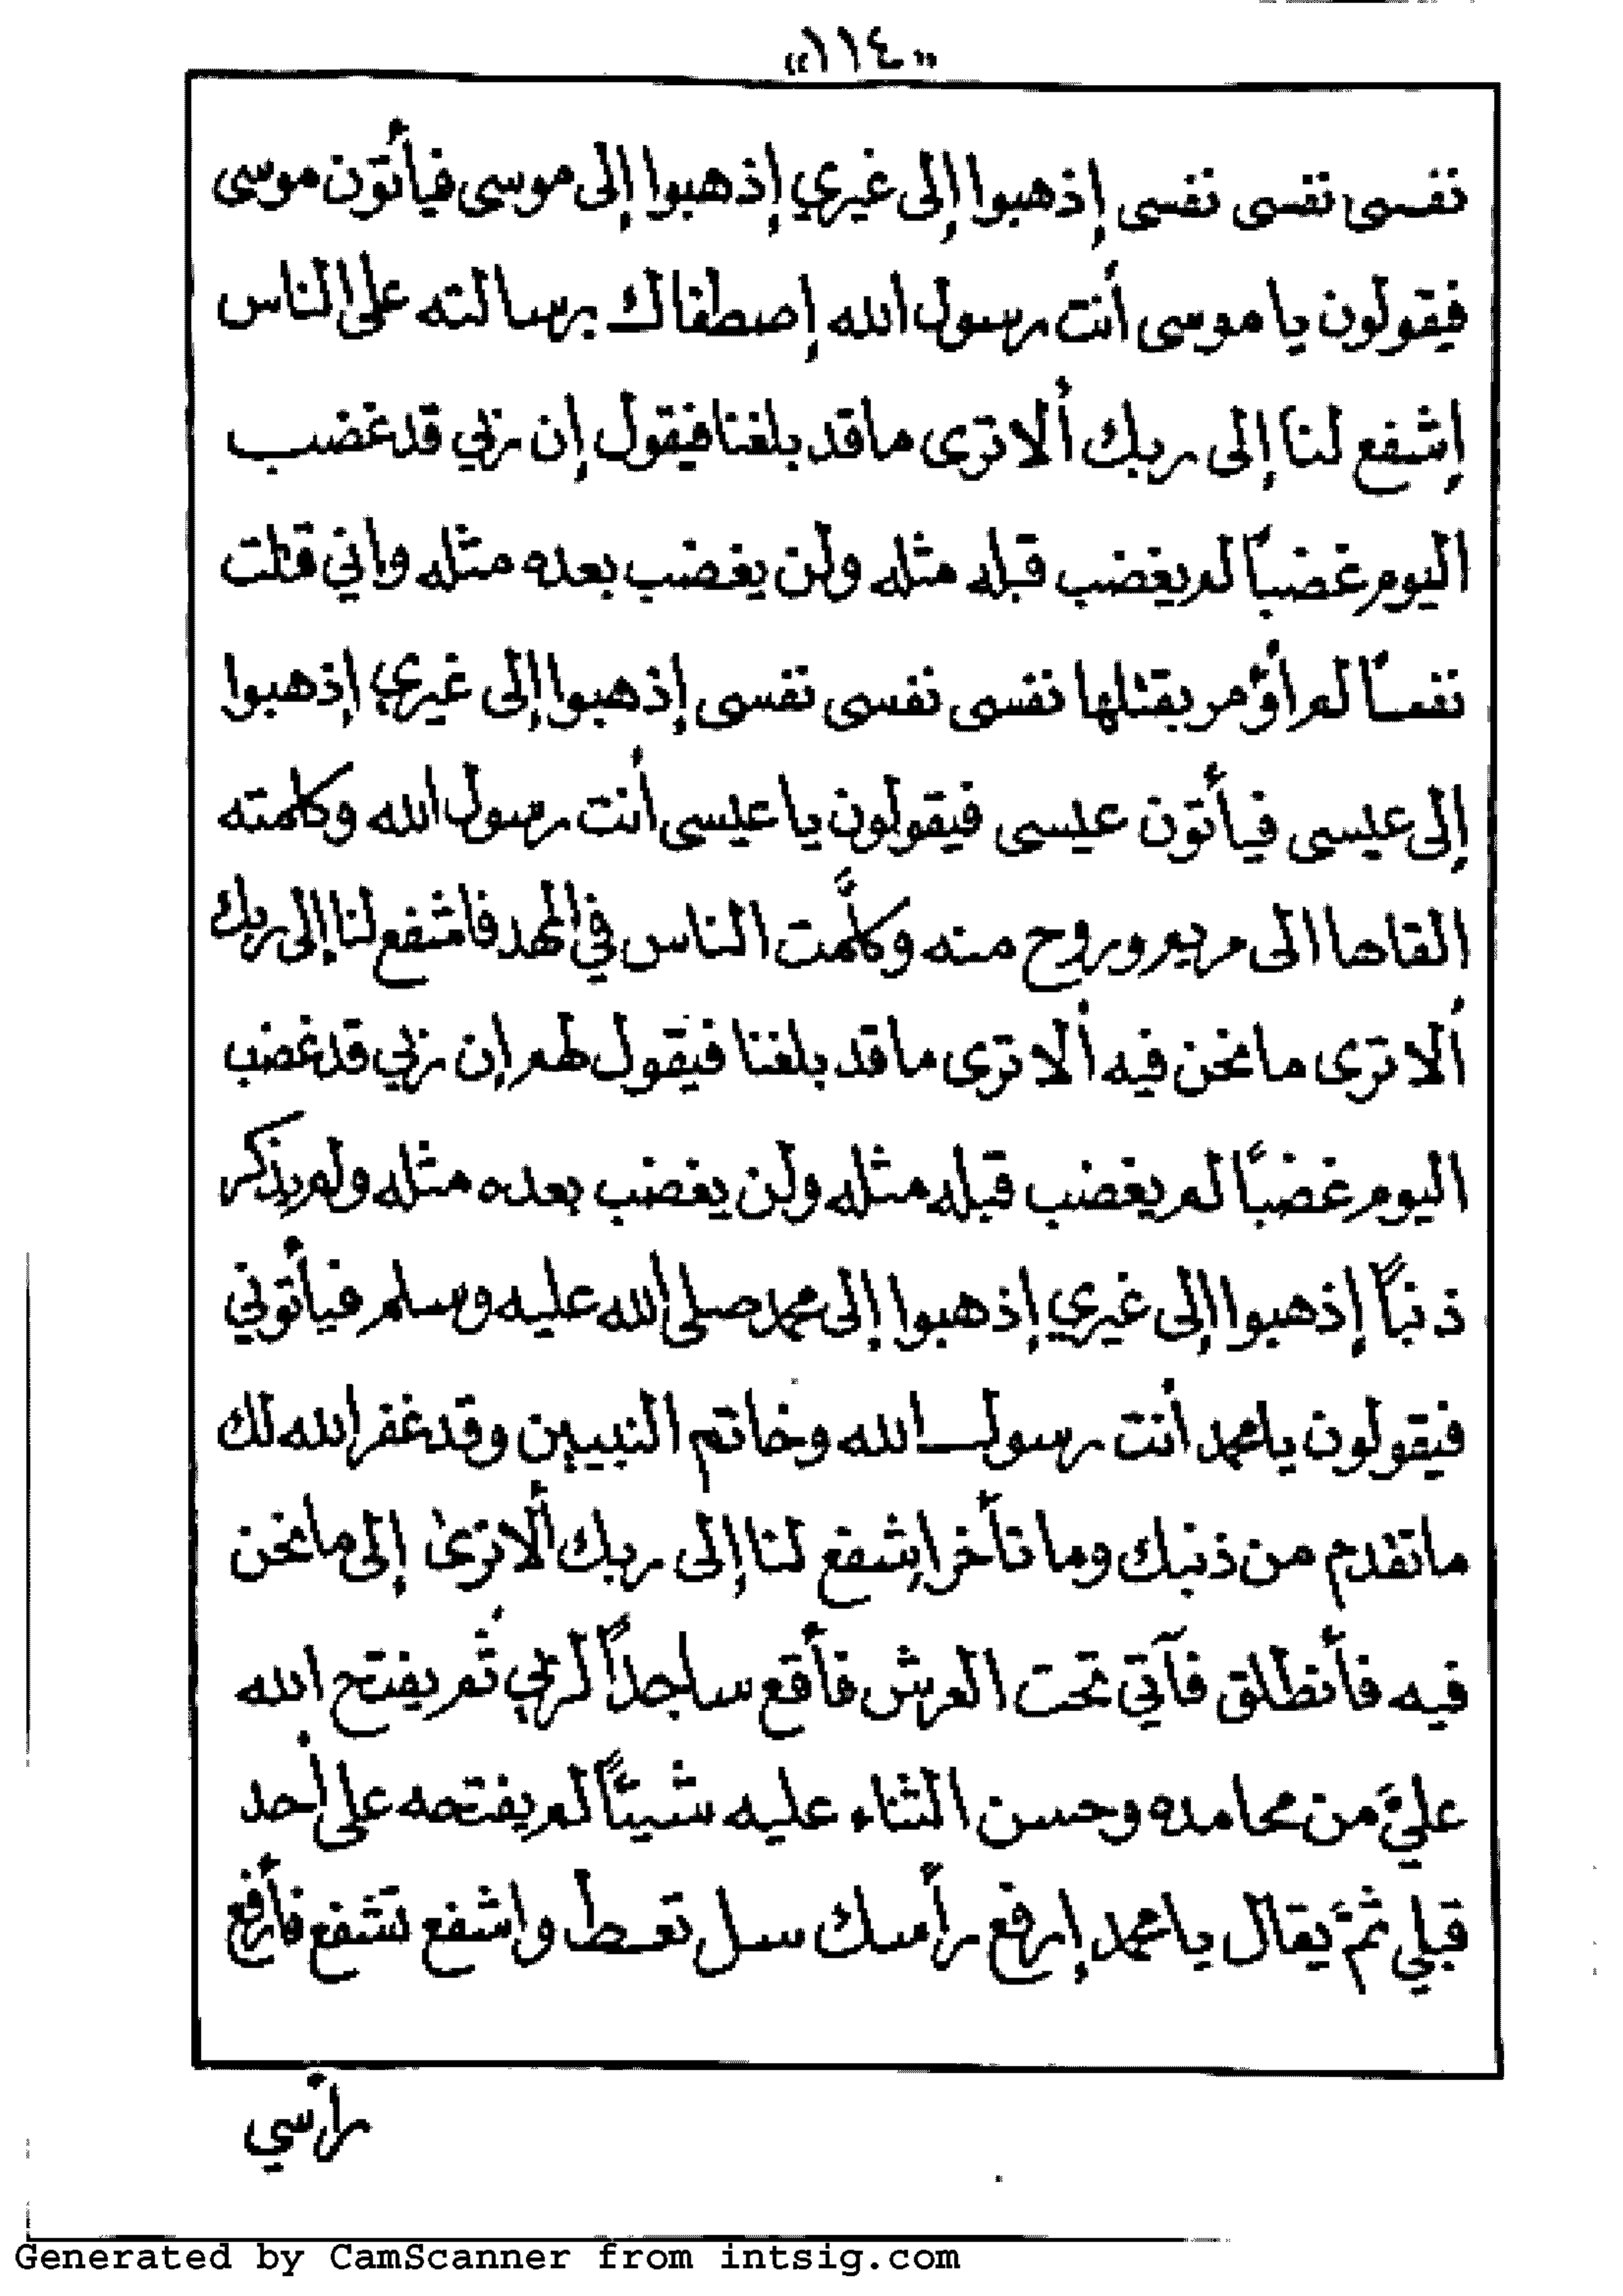 «١١٤»
نفسى نفسى نفسى إذهبوا إلى غيري إذهبوا إلى موسى فيأتون موسى
فيقولون يا موسى أنت رسول الله إصطفاك برسالته على الناس
إشفع لنا إلى ربك ألا ترى ما قد بلغنا فيقول إن ربي قد غضب
اليوم غضباً لم يغضب قبله مثله ولن يغضب بعده مثله واني قتلت
نفساً لم أؤمر بقتلها نفسى نفسى نفسى إذهبوا إلى غيري إذهبوا
إلى عيسى فيأتون عيسى فيقولون يا عيسى أنت رسول الله وكلمته
القاها الى مريم وروح منه وكلَّمت الناس في المهد فاشفع لنا إلى ربك
ألا ترى ما نحن فيه ألا ترى ما قد بلغنا فيقول لهم إن ربي قد غضب
اليوم غضباً لم يغضب قبله مثله ولن يغضب بعده مثله ولم يذكر
ذنباً إذهبوا إلى غيري إذهبوا إلى محمد صلى الله عليه وسلم فيأتوني
فيقولون يا محمد أنت رسول الله وخاتم النبيين وقد غفر الله لك
ما تقدم من ذنبك وما تأخر إشفع لنا إلى ربك ألا ترى إلى ما نحن
فيه فأنطلق فآتي تحت العرش فأقع ساجداً لربي ثُم يفتح الله
عليَّ من محامده وحسن الثناء عليه شيئاً لم يفتحه على أحد
قبلي ثمَّ يقال يا محمد إرفع رأسك سل تعط واشفع تشفع فأرفع
رأسي
Generated by CamScanner from intsig.com